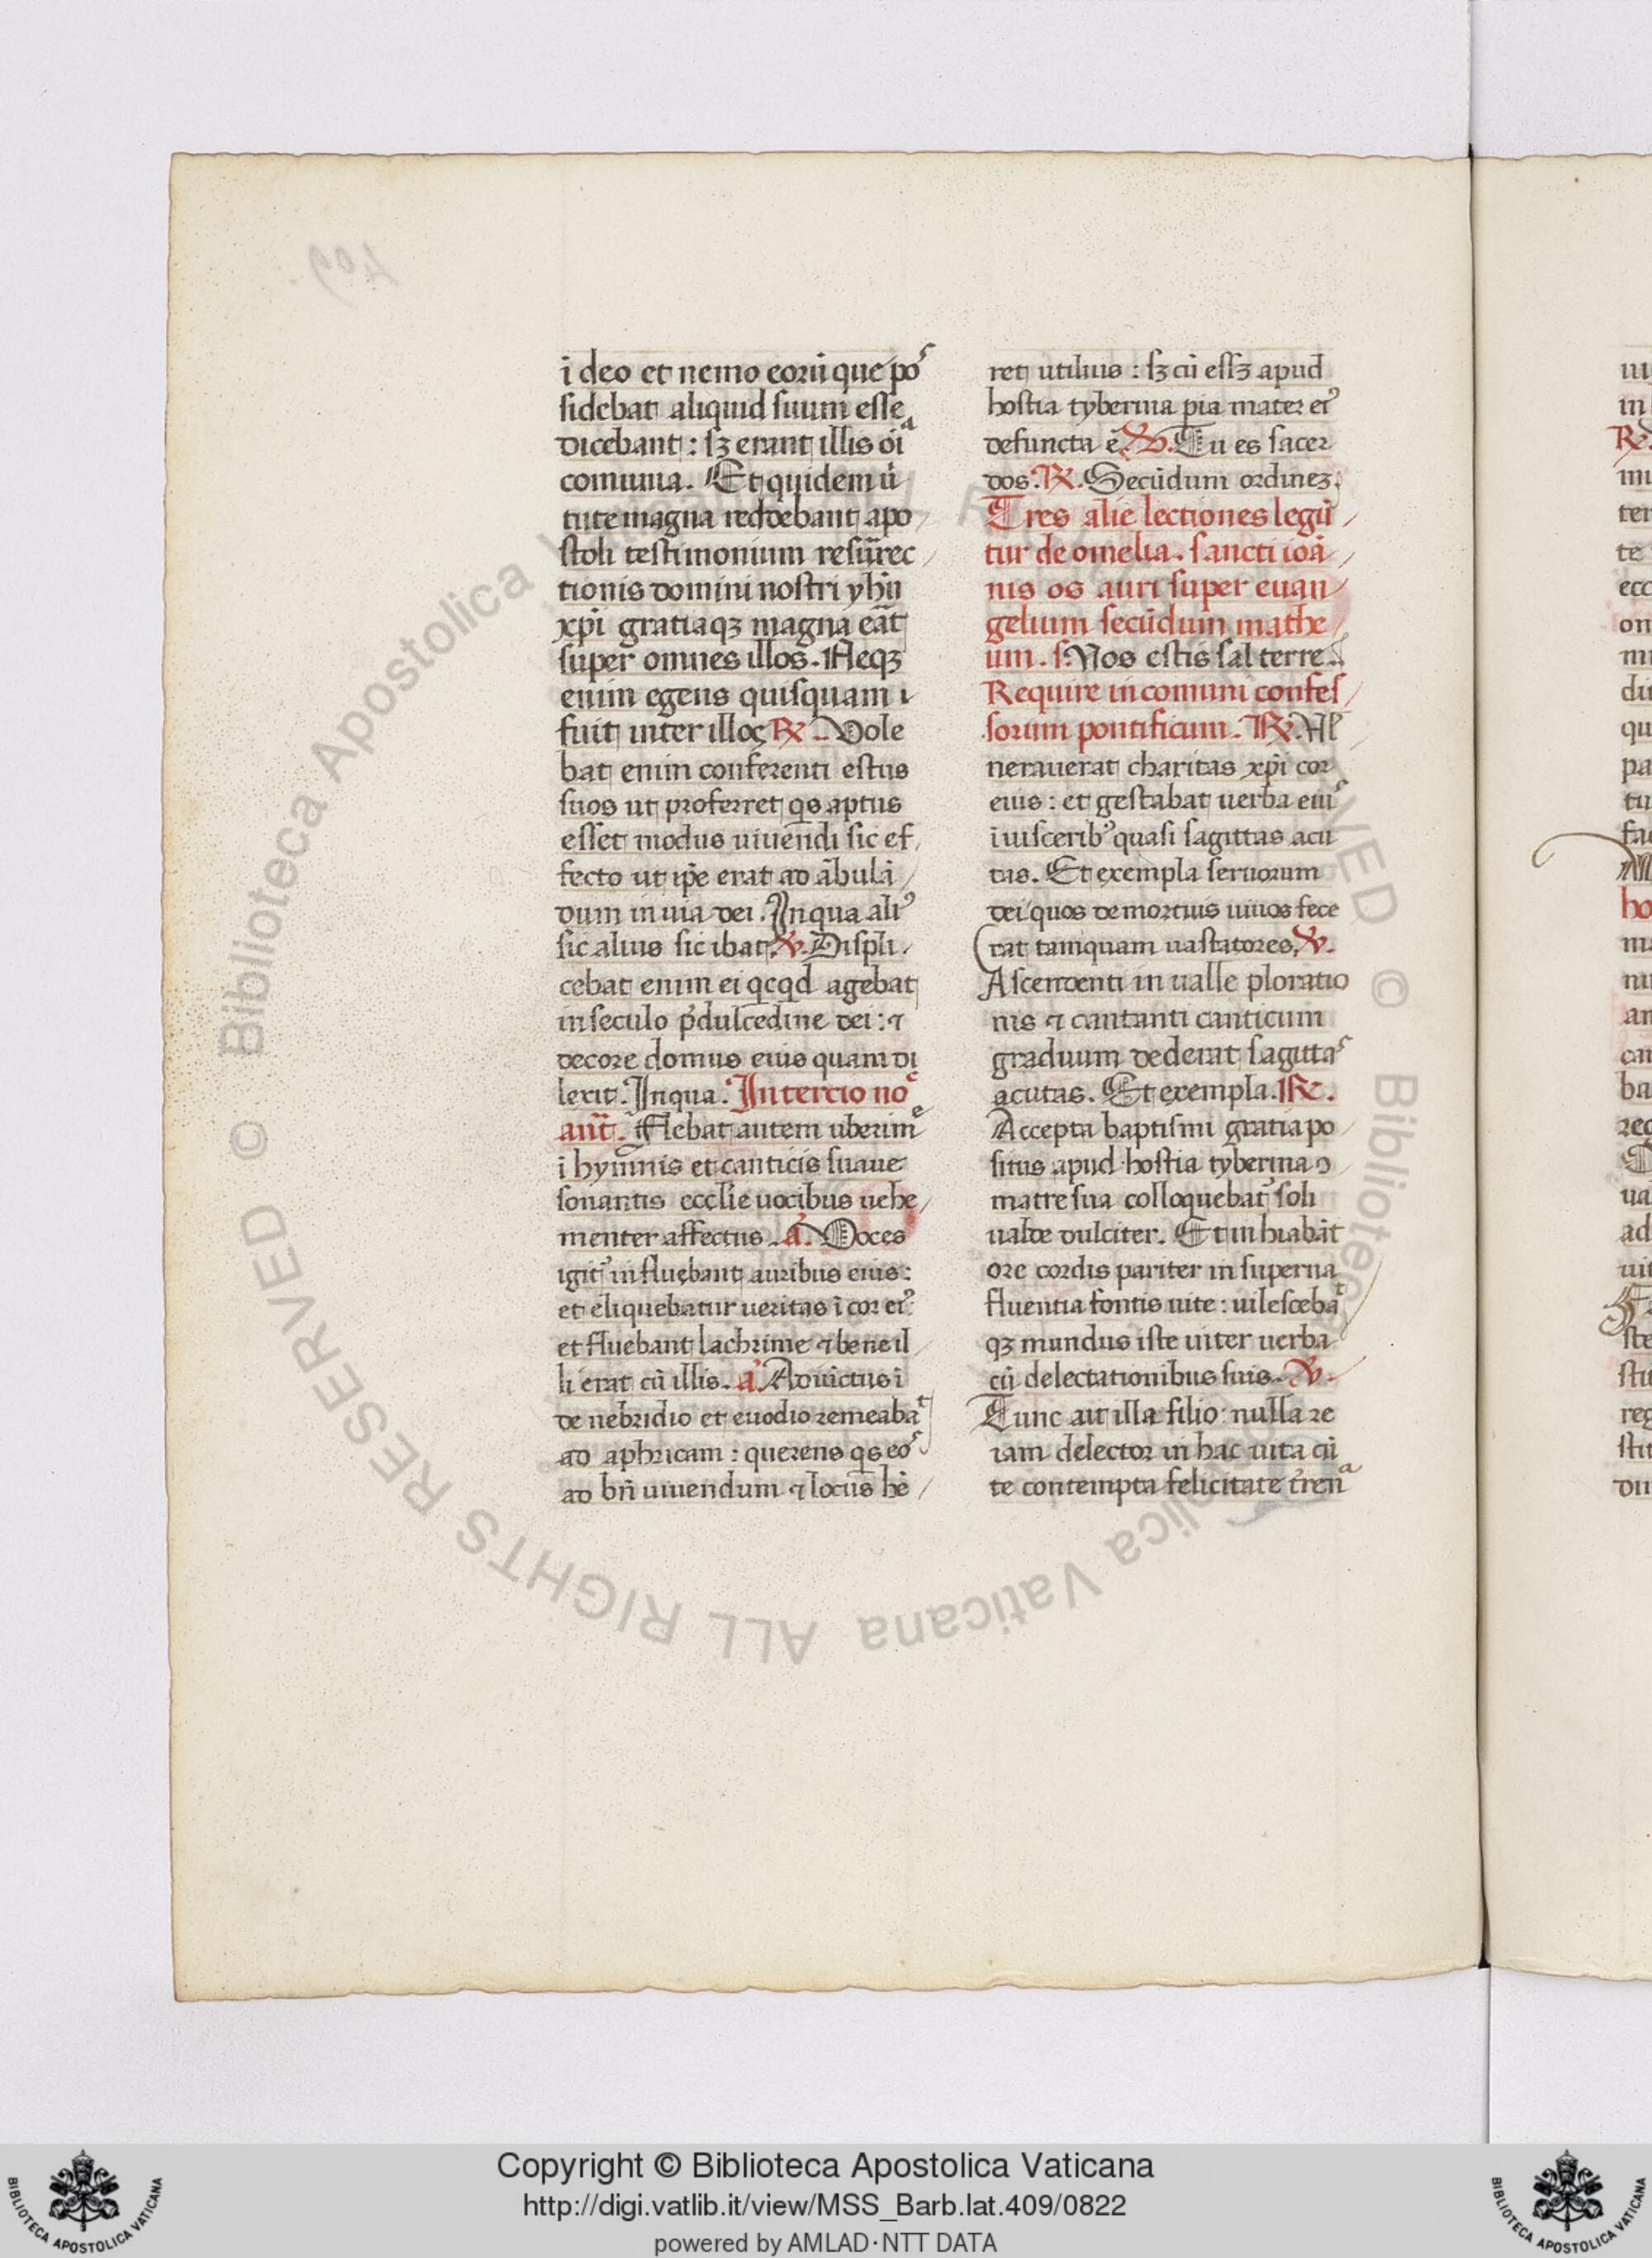 ī deo et nemo eoruꝫ que poſ
sidebat aliquid suum esse
dicebant : sꝫ erant illis oīa
comunia. Et quidem uī
tute magna reddebant apo
stoli testimonium resūrec
tionis domini nostri yhū
xp̄i gratiaqꝫ magna eāt
super omnes illos. Neqꝫ
enim egens quisquam
fuit inter illos ℞. Vole
bat enim conferenti estus
suos ut proferret qs aptus
esset modus uiuendi sic ef
fecto ut ip̄e erat ad ābulā
dum in uia dei. In qua aliꝰ
sic alius sic ibat. ℣. Displi
cebat enim ei qcqd agebat
in seculo p̄ dulcedine dei : ⁊
decore domus eius quam di
lexit. In qua. In tercio noc̄
an̄t. Flebat autem uberime
ī hymnis et canticis suaue
sonantis eccl̄ie uocibus uehe
menter affectus. a. Voces
igit᷑ influebant auribus eius :
et eliquebatur ueritas ī cor eiꝰ
et fluebant lachrime ⁊ bene il
li erat cū illis. a. Adiūctus ī
de nebridio et euodio remeabat
ad aphricam : querens qs eos
ad bn̄ uiuendum ⁊ locus hē
ret utilius : sꝫ cū essꝫ apud
hostia tyberina pia mater eiꝰ
defuncta ē. ℣. Tu es sacer
dos. ℞. Secūdum ordineꝫ.
Tres alie lectiones legū
tur de omelia. sancti ioā
nis os auri super euan
gelium secūdum mathe
um. s. Vos estis sal terre.
Require in comuni confes
sorum pontificum. ℞. Vl
nerauerat charitas xp̄i cor
eius : et gestabat uerba eius
ī uisceribꝰ quasi sagittas acu
tas. Et exempla seruorum
dei quos de mortuis uiuos fece
rat tamquam uastatores. ℣.
Ascendenti in ualle ploratio
nis ⁊ cantanti canticum
graduum dederat sagittas
acutas. Et exempla. ℞.
Accepta baptismi gratia po
situs apud hostia tyberina ↄ
matre sua colloquebat᷑ soli
ualde dulciter. Et inhiabāt
ore cordis pariter in superna
fluentia fontis uite : uilescebat
qꝫ mundus iste inter uerba
cū delectationibus suis. ℣.
Tunc ait illa filio : nulla re
iam delector in hac uita cū
te contempta felicitate t̄rena
Copyright © Biblioteca Apostolica Vaticana
http://digi.vatlib.it/view/MSS_Barb.lat.409/0822
powered by AMLAD·NTT DATA